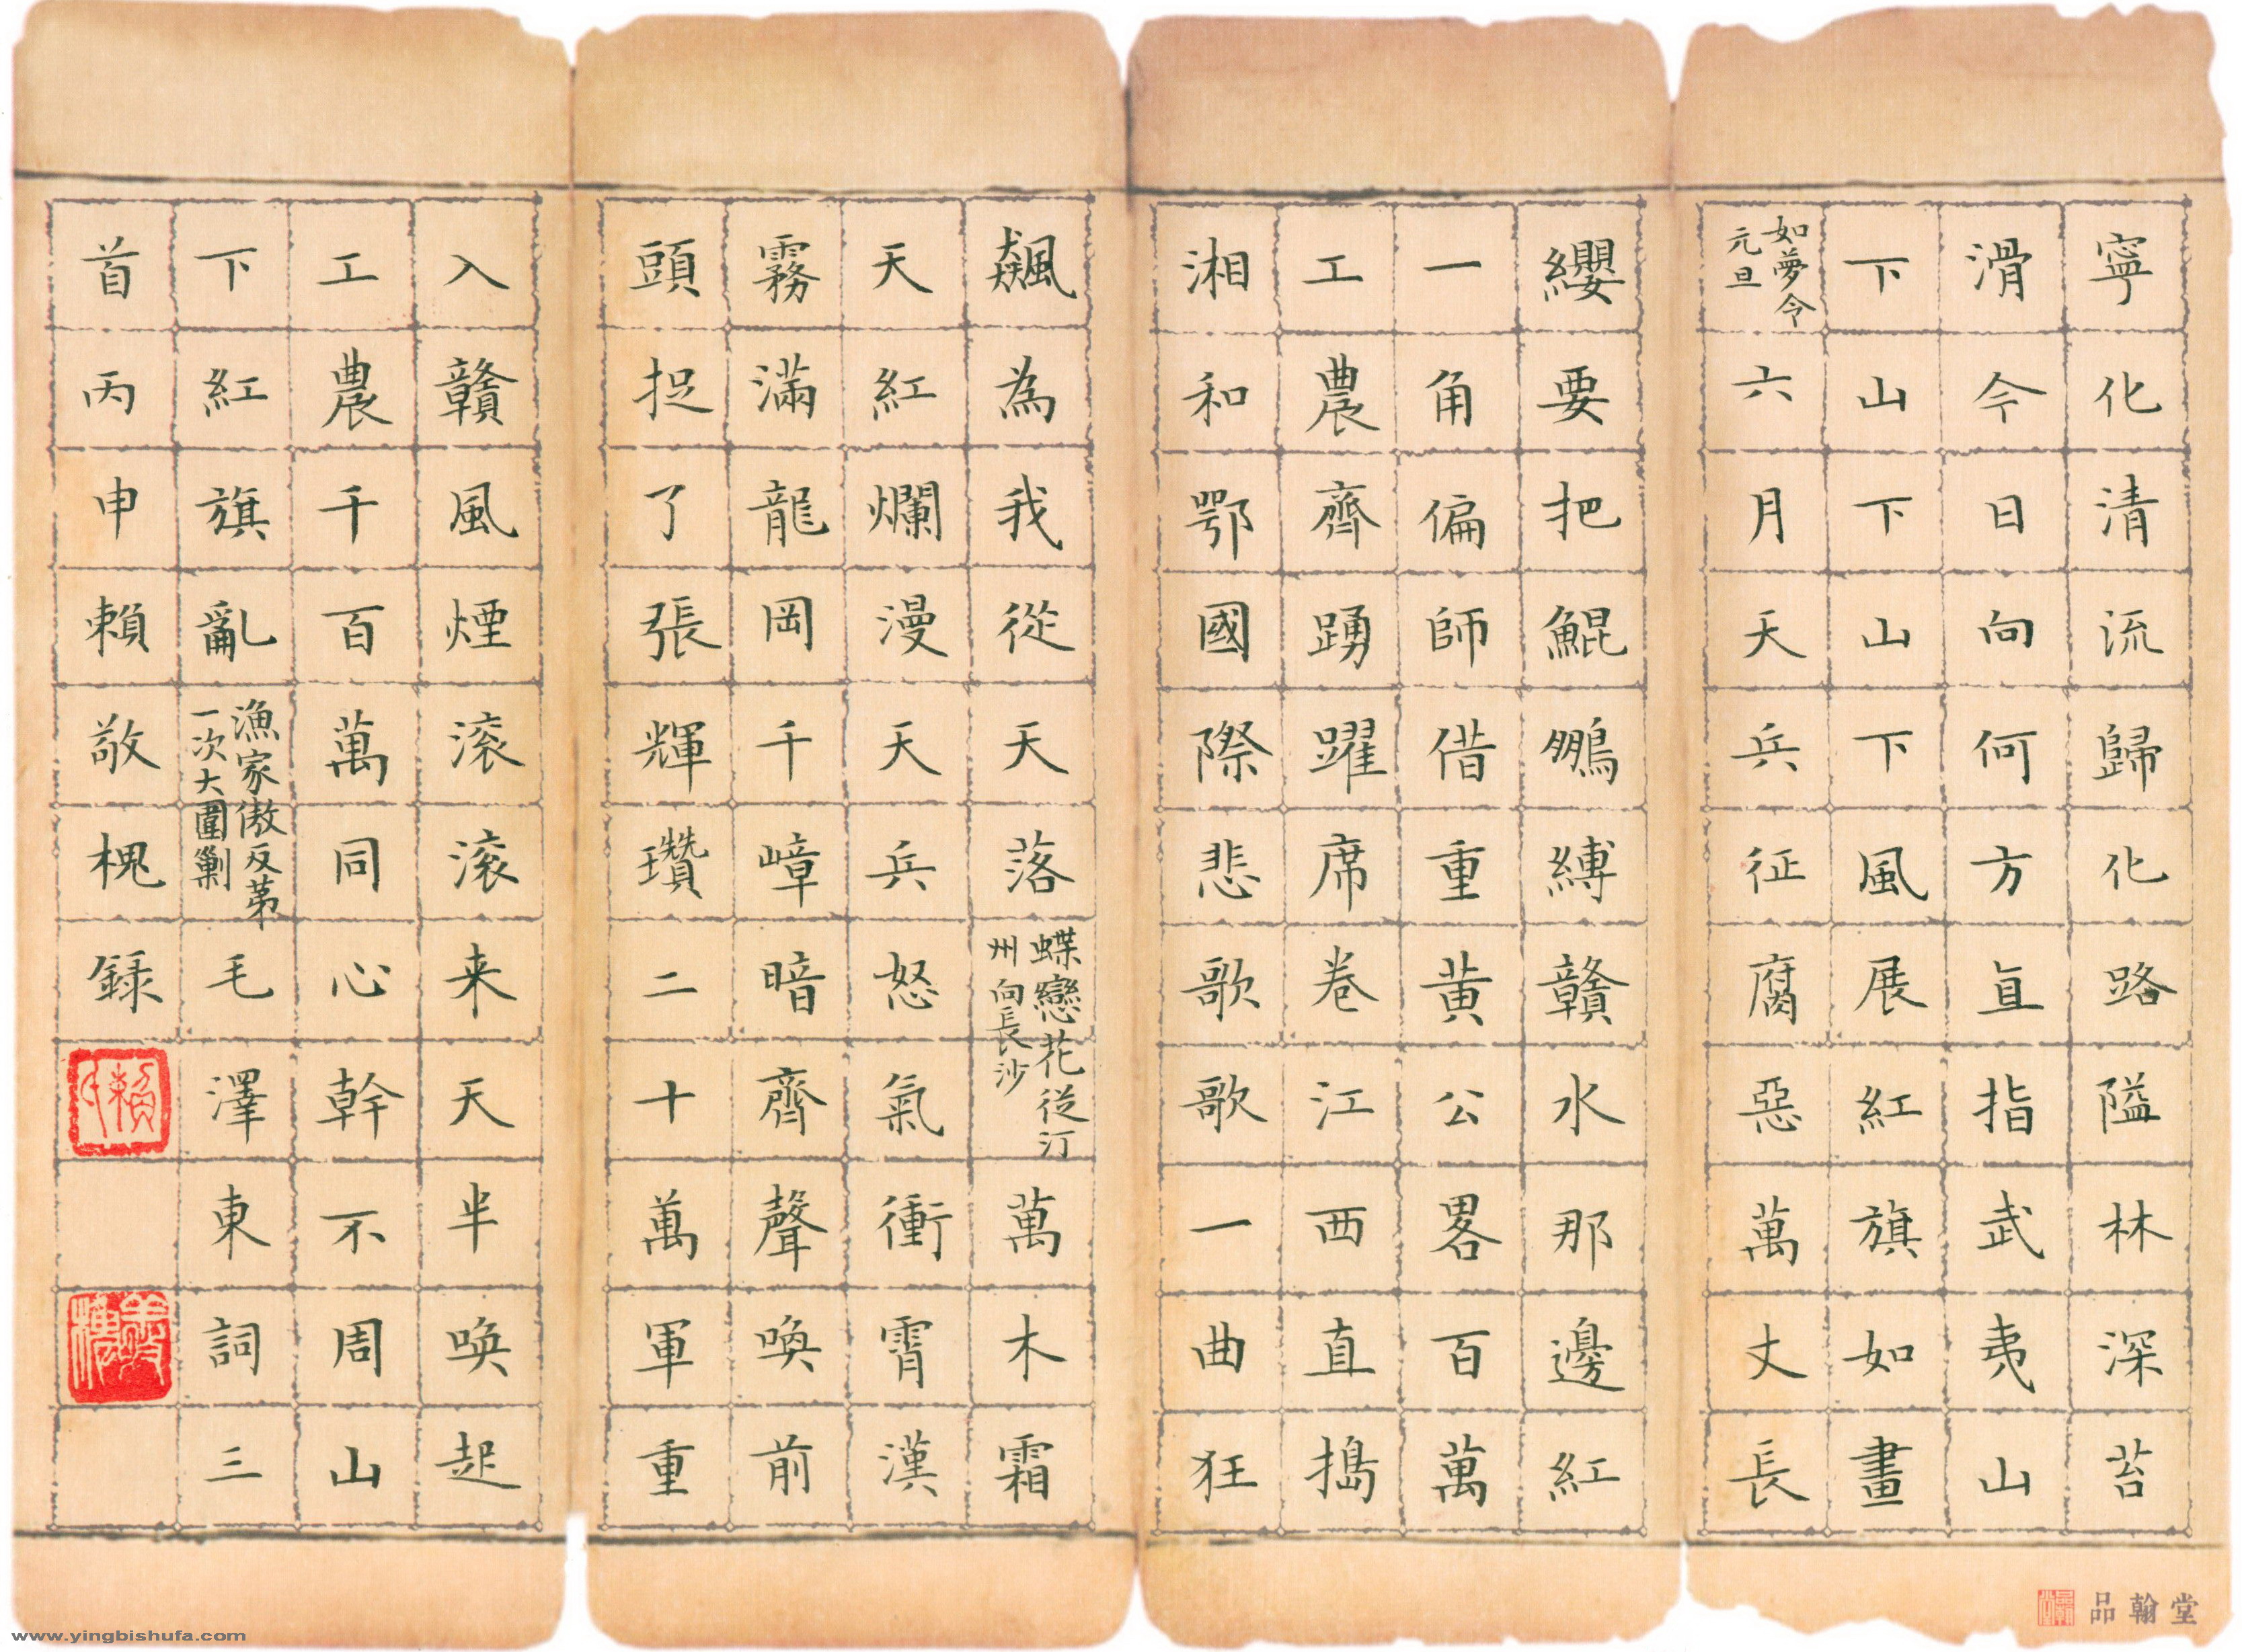 寧化清流歸化路隘林深苔
滑今日向何方直指武夷山
下山下山下風展紅旗如畫
如夢令
元旦
六月天兵征腐惡萬丈長
纓要把鯤鵬縛贛水那邊紅
一角偏師借重黃公畧百萬
工農齊踴躍席卷江西直搗
湘和鄂國際悲歌歌一曲狂
飆為我從天落
蝶戀花從汀
州向長沙
萬木霜
天紅爛漫天兵怒氣衝霄漢
霧滿龍岡千嶂暗齊聲喚前
頭捉了張輝瓚二十萬軍重
入贛風煙滚滚来天半喚起
工農千百萬同心幹不周山
下紅旗亂
漁家傲反苐
一次大圍剿
毛澤東詞三
首丙申賴敬槐録
品翰堂
www.yingbishufa.com